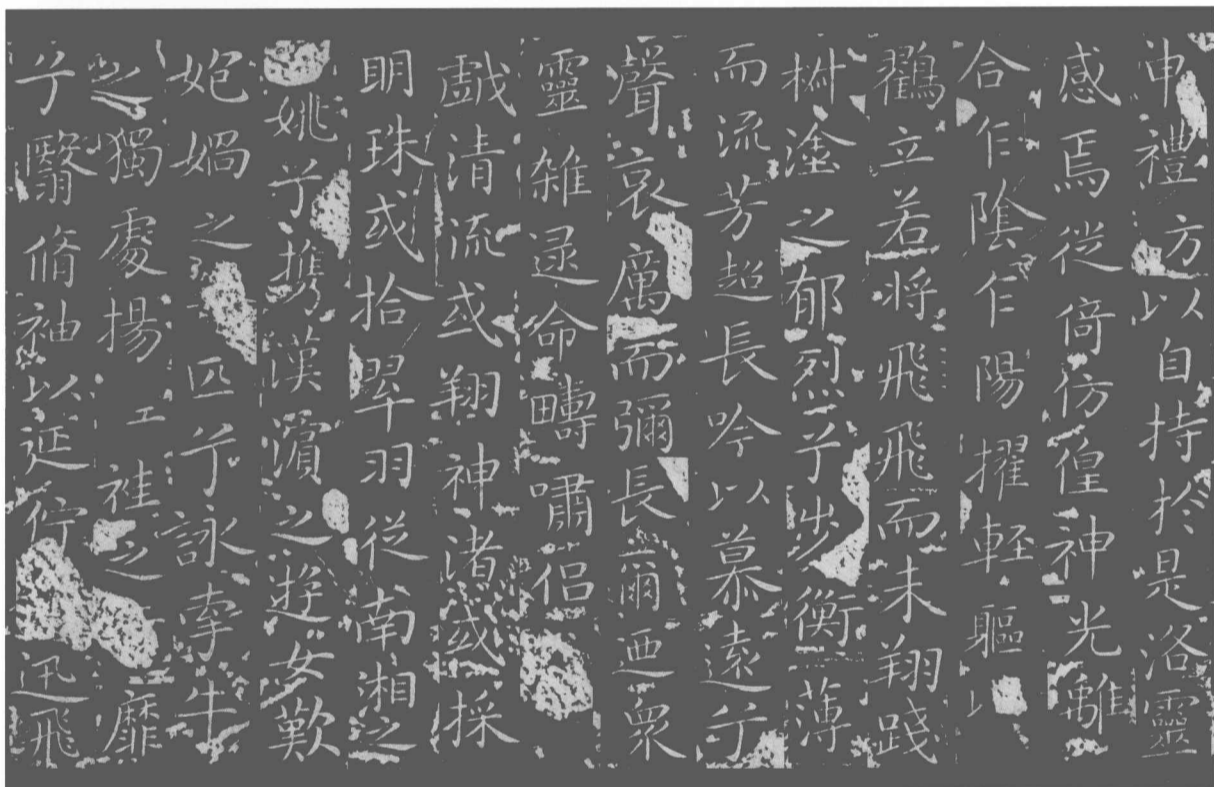 申禮方以自持於是洛靈
感焉徙倚彷徨神光離
合乍陰乍陽擢輕軀以
鸖立若將飛飛而未翔踐
椒塗之郁烈兮步衡薄
而流芳超長吟以慕遠兮
聲哀厲而彌長爾迺衆
靈雜遝命疇嘯侶
戲清流或翔神渚或採
明珠或拾翠羽從南湘之
姚兮攜漢濱之遊女歎
媧之匹兮詠牽牛
之獨處揚袿之靡
兮翳脩袖以延佇迅飛